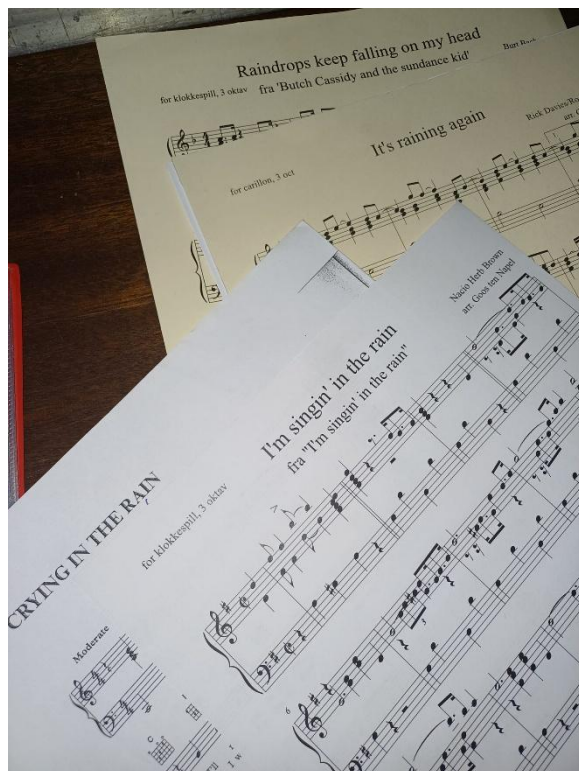 Raindrops keep falling on my head
for klokkespill, 3 oktav
fra 'Butch Cassidy and the sundance kid'
Burt
It's raining again
Rick Davies/
for carillon, 3 oct
arr.
Nacio Herb Brown
arr. Goos ten Napel
I'm singin' in the rain
fra "I'm singin' in the rain"
for klokkespill, 3 oktav
CRYING IN THE RAIN
Moderate
3
6
C
I
I
I w